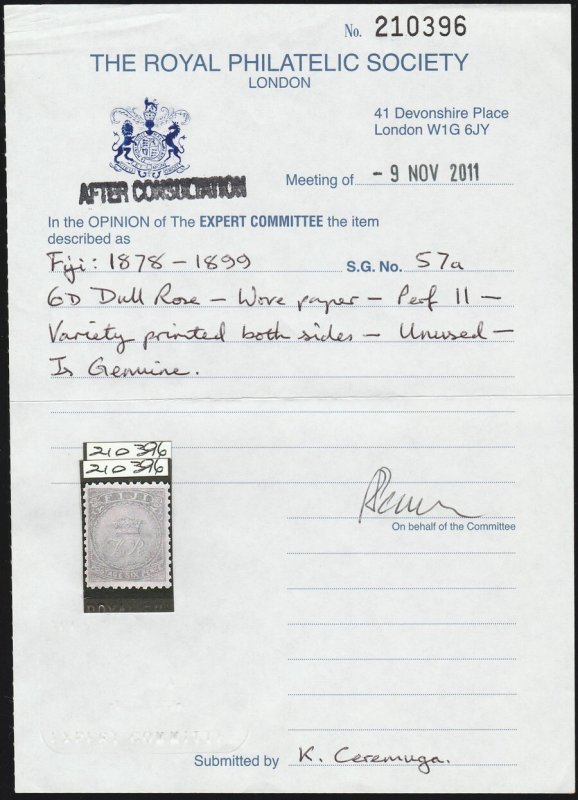 No. 210396
THE ROYAL PHILATELIC SOCIETY
LONDON
41 Devonshire Place
London W1G 6JY
AFTER CONSULTATION
Meeting of - 9 NOV 2011
In the OPINION of The EXPERT COMMITTEE the item
described as
Fiji: 1878-1899 S.G. No. 57a
6D Dull Rose - Wove paper - Perf 11 -
Variety printed both sides - Unused -
Is Genuine.
210396
210396
FIJI
VR
SIX
On behalf of the Committee
Submitted by K. Ceremuga.